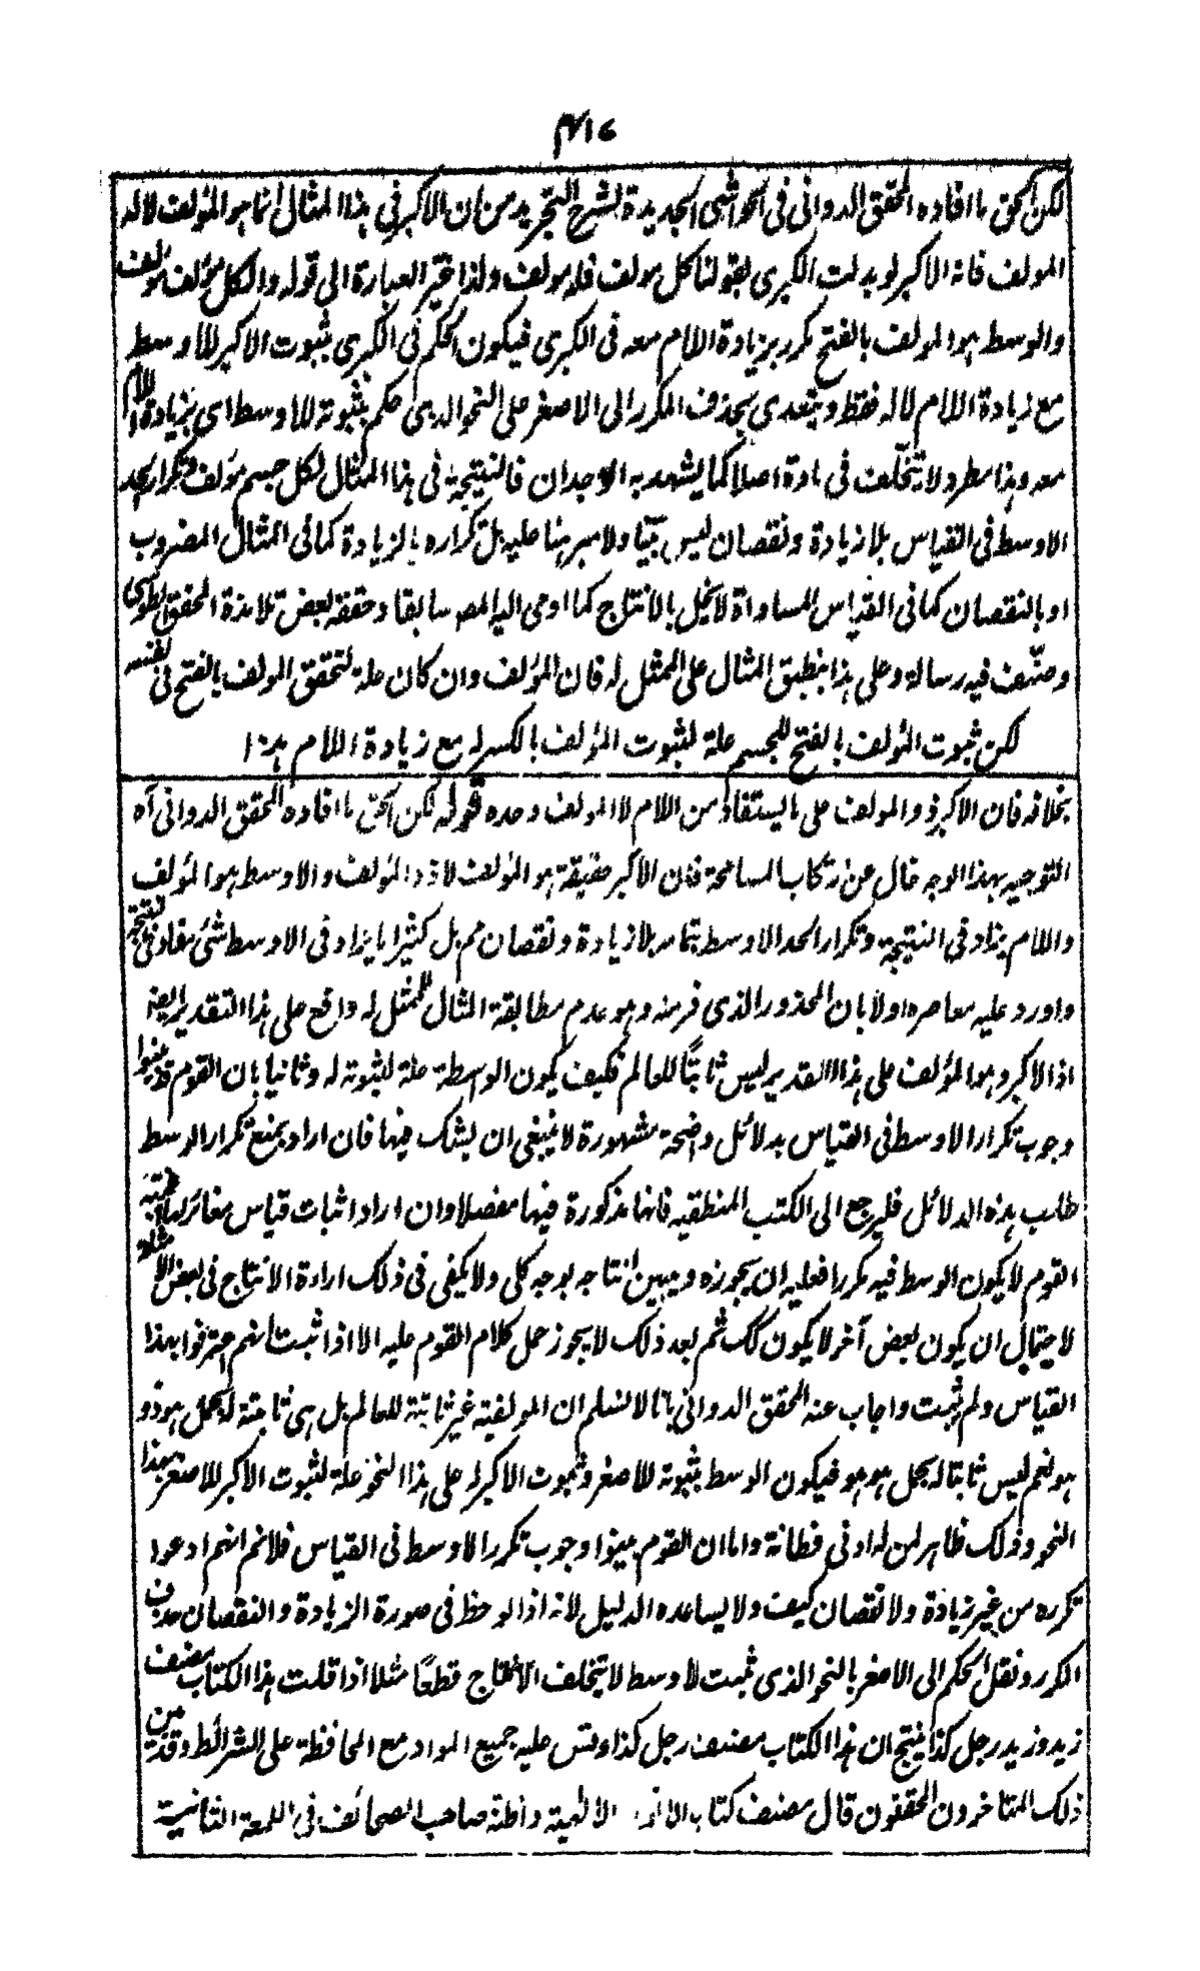 ۴۱۶
لكن الحق ما افاده المحقق الدوانى فى الحواشى الجديدة لشرح التجريد من ان الاكبر فى هذا المثال انما هو المؤلف لا له
المولف فانه الاكبر لو بدلت الكبرى بقولنا كل مولف فله مولف ولذا غير العبارة الى قوله والكل مؤلف مؤلف
والوسط هو المولف بالفتح تكرر بزيادة اللام معه فى الكبرى فيكون الحكم فى الكبرى بثبوت الاكبر للاوسط
مع زيادة اللام لا له فقط ويتعدى بحذف المكرر الى الاصغر على النحو الذى حكم بثبوته للاوسط اى بزيادة اللام
معه وهذا مطرد ولا يتخلف فى مادة اصلا كما يشهد به الوجدان فالنتيجة فى هذا المثال لكل جسم مؤلف وتكرار الحد
الاوسط فى القياس بلا زيادة ونقصان ليس بيّنا ولا مبرهنا عليه بل تكراره بالزيادة كما فى المثال المضروب
او بالنقصان كما فى القياس المساواة لا يخل بالانتاج كما اومى اليه المصـ سابقا وحققه بعض تلامذة المحقق الطوسى
وصنّف فيه رسالة وعلى هذا ينطبق المثال على الممثل له فان المؤلف وان كان علة لتحقق المولف بالفتح فى نفسه
لكن ثبوت المؤلف بالفتح للجسم علة لثبوت المؤلف بالكسر له مع زيادة اللام هذا
بخلافه فان الاكبر ذو المولف على ما يستفاد من اللام لا المولف وحده قوله لكن الحق ما افاده المحقق الدوانى آه
التوجيه بهذا الوجه قال عن ارتكاب المسامحة فان الاكبر حقيقة هو المؤلف لا ذو المؤلف والاوسط هو المؤلف
واللام يزاد فى النتيجة وتكرار الحد الاوسط بتمامه بلا زيادة ونقصان مم بل كثيرا ما يزاد فى الاوسط شئ مفاد فى النتيجة
واورد عليه معاصره اولا بان المحذور الذى فر منه وهو عدم مطابقة المثال للممثل له واقع على هذا التقدير ايضا
اذ الاكبر وهو المؤلف على هذا التقدير ليس ثابتًا للعالم فكيف يكون الواسطة علة لثبوته له وثانيا بان القوم قد بينوا
وجوب تكرار الاوسط فى القياس بدلائل واضحة مشهورة لا ينبغى ان يشك فيها فان اراد بمنع تكرار الوسط
طلب هذه الدلائل فليرجع الى الكتب المنطقيه فانها مذكورة فيها مفصلا وان اراد اثبات قياس مغائر لما اثبته
القوم لا يكون الوسط فيه مكررا فعليه ان يجوزه ويبين انتاجه بوجه كلى ولا يكفى فى ذلك ارادة الانتاج فى بعض الامثلة
لاحتمال ان يكون بعض آخر لا يكون كك ثم بعد ذلك لا يجوز حمل كلام القوم عليه الا اذا ثبت انهم اعترفوا بهذا
القياس ولم يثبت واجاب عنه المحقق الدوانى بانا لا نسلم ان المولفية غير ثابتة للعالم بل هى ثابتة له بحمل هو ذو
هو نعم ليس ثابتا له بحمل هو هو فيكون الوسط بثبوته للاصغر وثبوت الاكبر له على هذا النحو علة لثبوت الاكبر للاصغر بهذا
النحو وذلك ظاهر لمن له ادنى فطانة واما ان القوم بينوا وجوب تكرر الاوسط فى القياس فلانم انهم ادعوا
تكرره من غير زيادة ولا نقصان كيف ولا يساعده الدليل لانه اذا لوحظ فى صورة الزيادة والنقصان حذف
المكرر ونقل الحكم الى الاصغر بالنحو الذى ثبت لاوسط لا يتخلف الانتاج قطعًا مثلا اذا قلت هذا الكتاب مصنف
زيد وزيد رجل كذا ينتج ان هذا الكتاب مصنف رجل كذا وقس عليه جميع المواد مع المحافظة على الشرائط وقد بين
ذلك المتاخرون المحققون قال مصنف كتاب الانوار الالهية واظنه صاحب الصحائف فى اللمعة الثانية